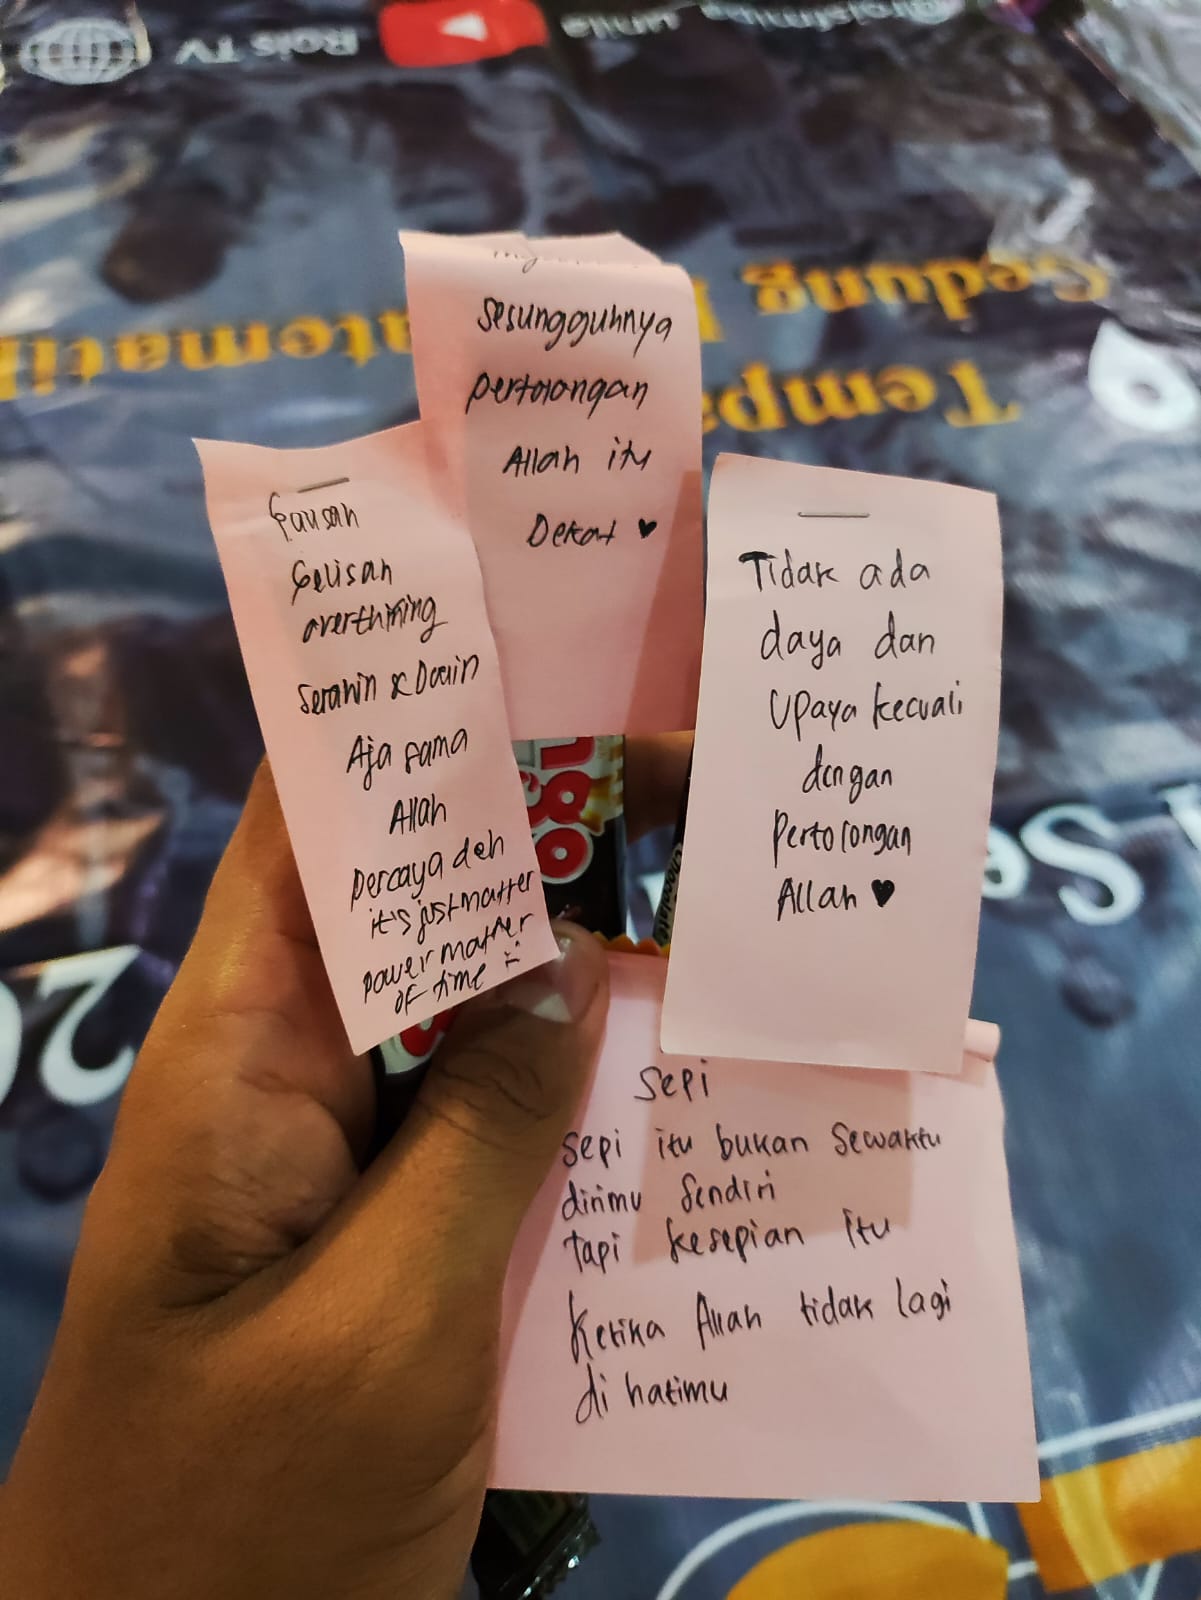 Rois TV
Sesungguhnya
pertolongan
Allah itu
Dekat ♥
Gausah
Gelisah
overthinking
Serahin & Doain
Aja sama
Allah
percaya deh
it's just matter
power matter
of time
Tidak ada
daya dan
Upaya kecuali
dengan
Pertolongan
Allah ♥
Sepi
Sepi itu bukan sewaktu
dirimu sendiri
tapi kesepian itu
Ketika Allah tidak lagi
di hatimu
ngo
Chocolate
Gedung
Tempa